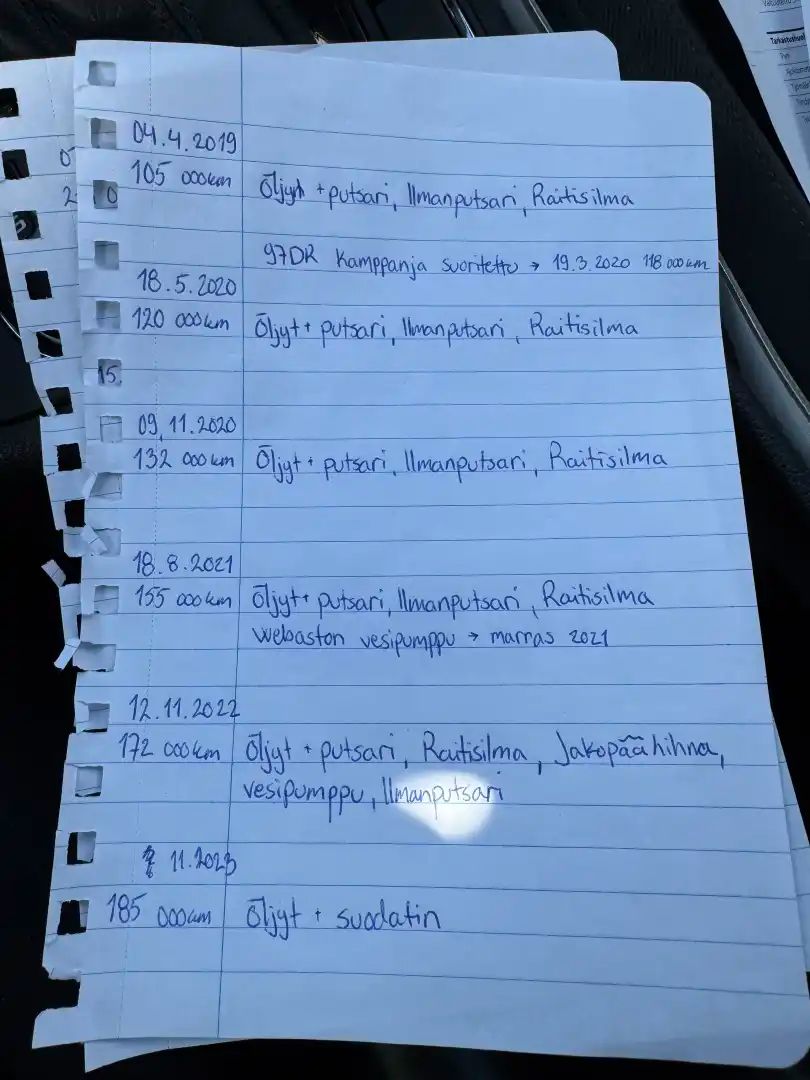 04.4.2019
105 000km Öljyt + putsari, Ilmanputsari, Raitisilma
97DR Kamppanja suoritettu → 19.3.2020 118 000km
18.5.2020
120 000km Öljyt + putsari, Ilmanputsari, Raitisilma
15.
09.11.2020
132 000km Öljyt + putsari, Ilmanputsari, Raitisilma
18.8.2021
155 000km Öljyt + putsari, Ilmanputsari, Raitisilma
Webaston vesipumppu → marras 2021
12.11.2022
172 000km Öljyt + putsari, Raitisilma, Jakopäähihna,
vesipumppu, Ilmanputsari
11.2023
185 000km Öljyt + suodatin